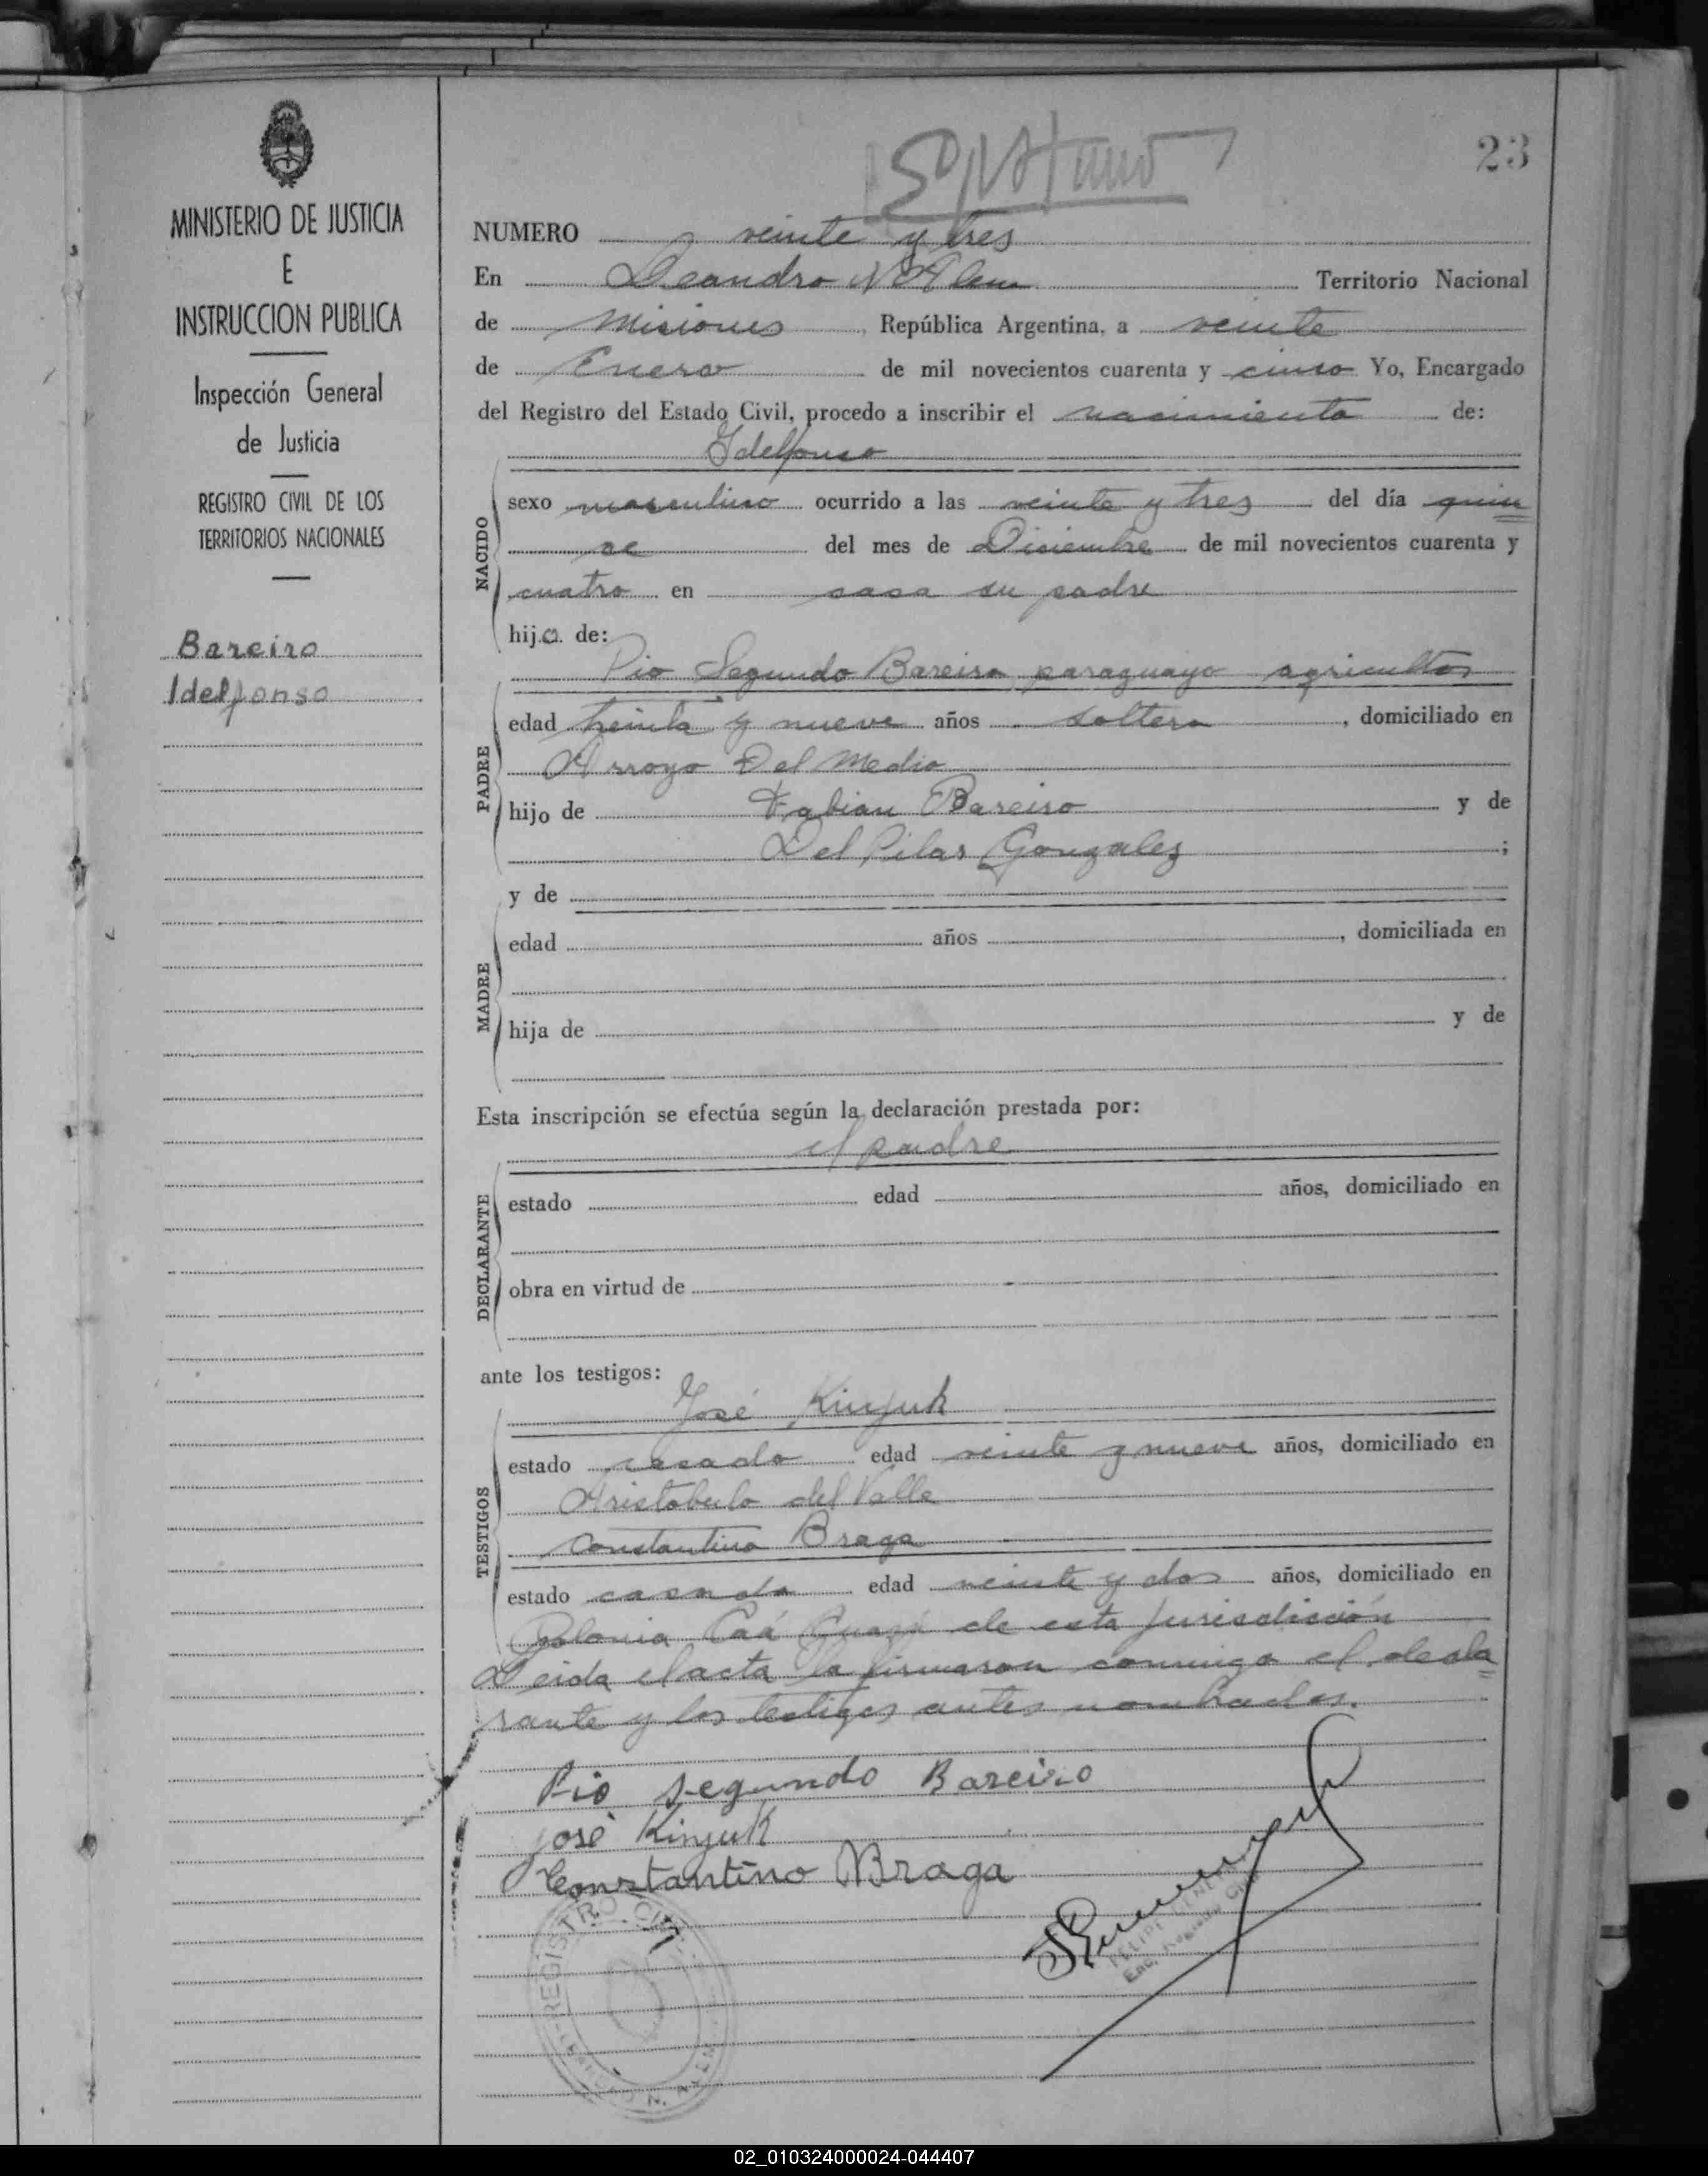 23
NUMERO veinte y tres
En Leandro N Alem Territorio Nacional
de Misiones, República Argentina, a veinte
de Enero de mil novecientos cuarenta y cinco Yo, Encargado
del Registro del Estado Civil, procedo a inscribir el nacimiento de:
Idelfonso
NACIDO
sexo masculino ocurrido a las veinte y tres del día quin
ce del mes de Diciembre de mil novecientos cuarenta y
cuatro en casa su padre
hijo de:
Pio Segundo Bareiro paraguayo agricultor
PADRE
edad treinta y nueve años soltero, domiciliado en
Arroyo Del Medio
hijo de Fabian Bareiro y de
Del Pilar Gonzalez;
y de
MADRE
edad años, domiciliada en
hija de y de
Esta inscripción se efectúa según la declaración prestada por:
el padre
DECLARANTE
estado edad años, domiciliado en
obra en virtud de
ante los testigos:
José Kinjuk
TESTIGOS
estado casado edad veinte y nueve años, domiciliado en
Aristobulo del Valle
Constantino Braga
estado casado edad veinte y dos años, domiciliado en
Colonia Caá Guazú de esta jurisdicción
Leida el acta la firmaron conmigo el decla
rante y los testigos antes nombrados.
Pio segundo Bareiro
josé Kinjuk
Constantino Braga
REGISTRO CIVIL
N. ALEM
MINISTERIO DE JUSTICIA
E
INSTRUCCION PUBLICA
Inspección General
de Justicia
REGISTRO CIVIL DE LOS
TERRITORIOS NACIONALES
Bareiro
Idelfonso
02_010324000024-044407